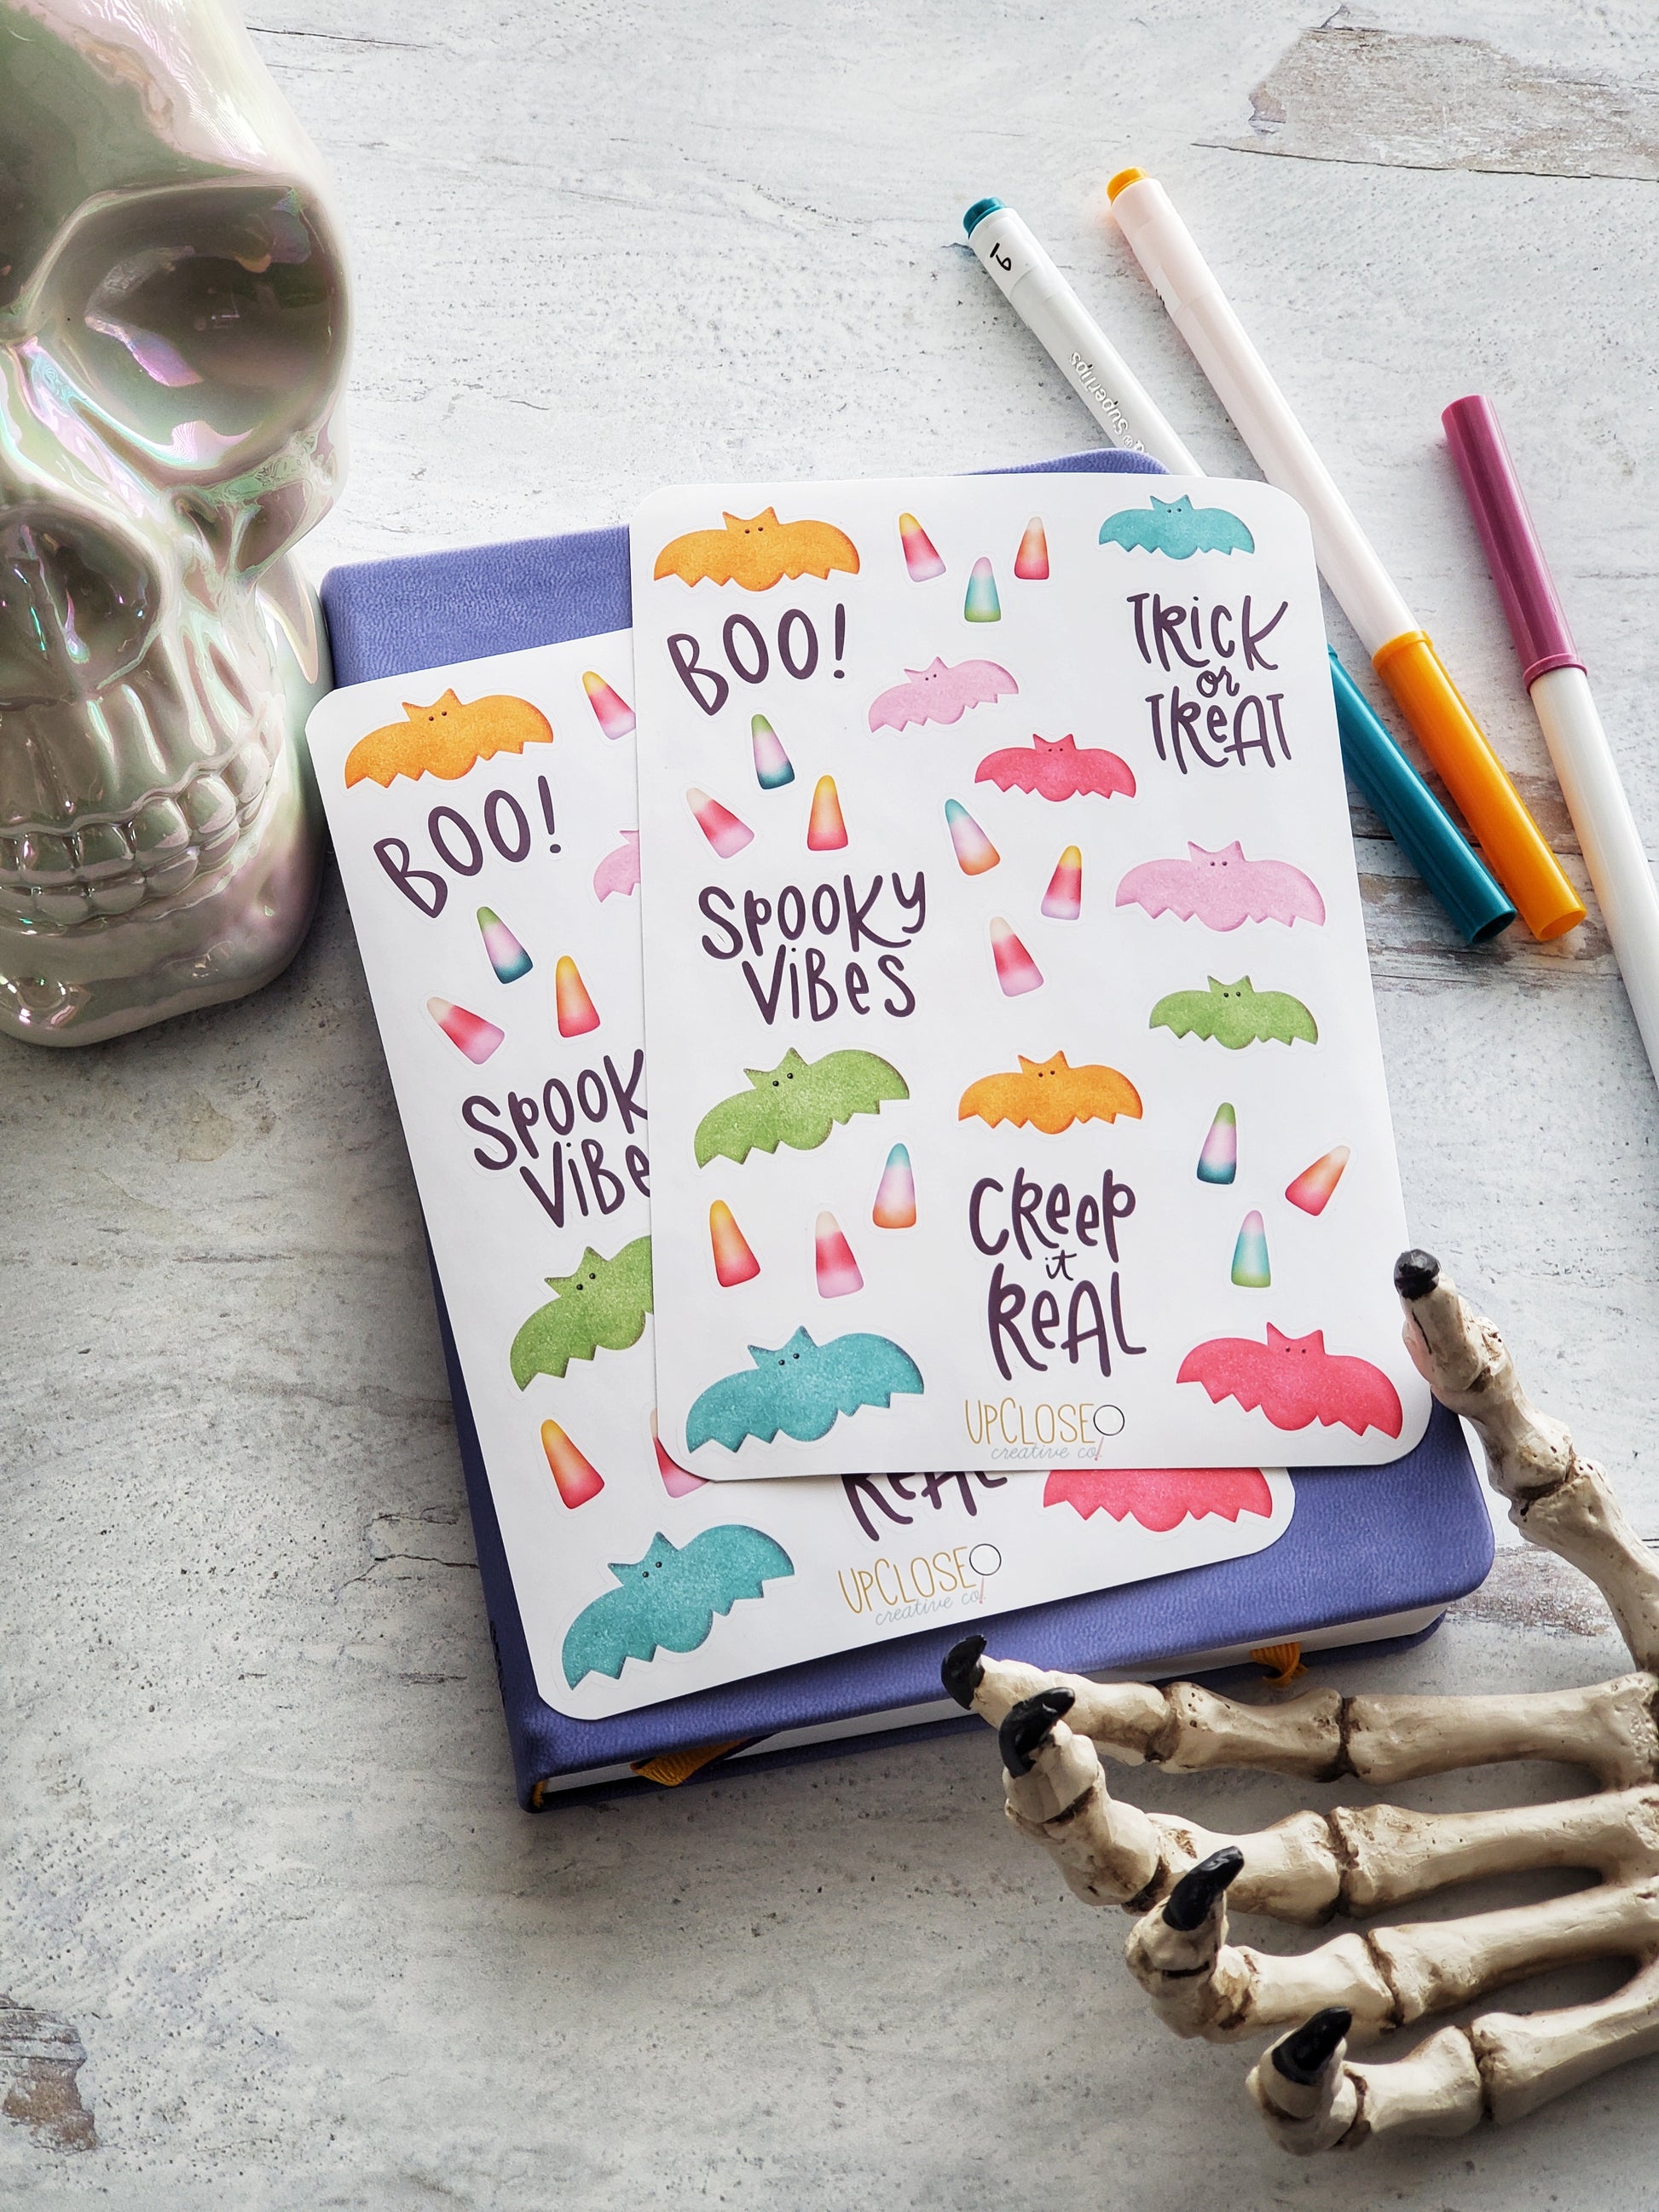 16
Supertips
BOO!
TRICK
or
TREAT
SPOOKY
ViBeS
CReep
it
ReAL
UPCLOSE
creative co!
BOO!
SPOOK
ViBe
ReAL
UPCLOSE
creative co!